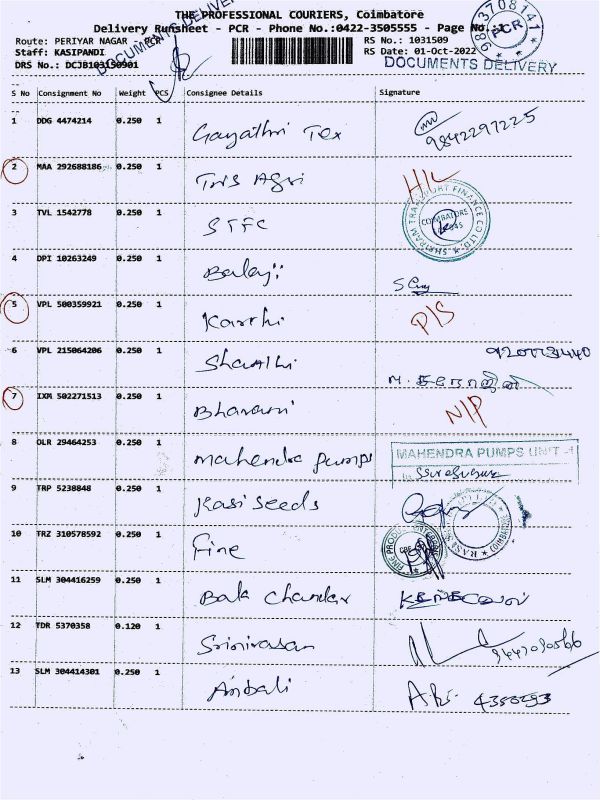 THE PROFESSIONAL COURIERS, Coimbatore
Delivery Runsheet - PCR - Phone No.:0422-3505555 - Page No.:1
Route: PERIYAR NAGAR - PCR
RS No.: 1031509
Staff: KASIPANDI
RS Date: 01-Oct-2022
DRS No.: DCJB103150901
DOCUMENTS DELIVERY
DOCUMENTS DELIVERY
PCR
S No Consignment No Weight PCS Consignee Details Signature
1 DDG 4474214 0.250 1 Gayathri Tex 9842297225
2 MAA 292688186 0.250 1 Tris Agri H/L
3 TVL 1542778 0.250 1 STFC
SHRIRAM TRANSPORT FINANCE CO LTD. COIMBATORE
4 DPI 10263249 0.250 1 Balaji
5 VPL 500359921 0.250 1 Karthi P/S
6 VPL 215064206 0.250 1 Sharathi
7 IXM 502271513 0.250 1 Bhavani N/P
8 OLR 29464253 0.250 1 mahendra pumps
MAHENDRA PUMPS UNIT -I
9 TRP 5238848 0.250 1 Kasi seeds
10 TRZ 310578592 0.250 1 Fine
11 SLM 304416259 0.250 1 Bala Chander
12 TDR 5370358 0.120 1 Srinivasan
13 SLM 304414301 0.250 1 Anbali